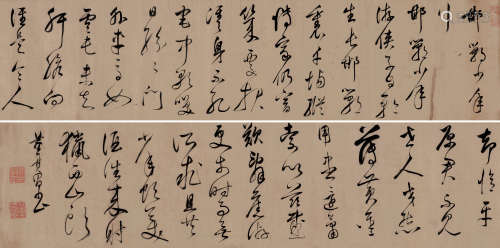 邯鄲少年
行
邯鄲少年
游俠子自矜
生長邯鄲
裏千場縱
博家仍富
幾度報
讎身不死
宅中歌笑
日紛紛門
外車馬如
雲屯未知
肝膽向
誰是令人
却憶平
原君不見
人交態
薄黃金
用盡還疎
索以茲感
歎辭舊游
更於時事無
所求且共
少年飲美
酒往來射
獵西山頭
董其昌書